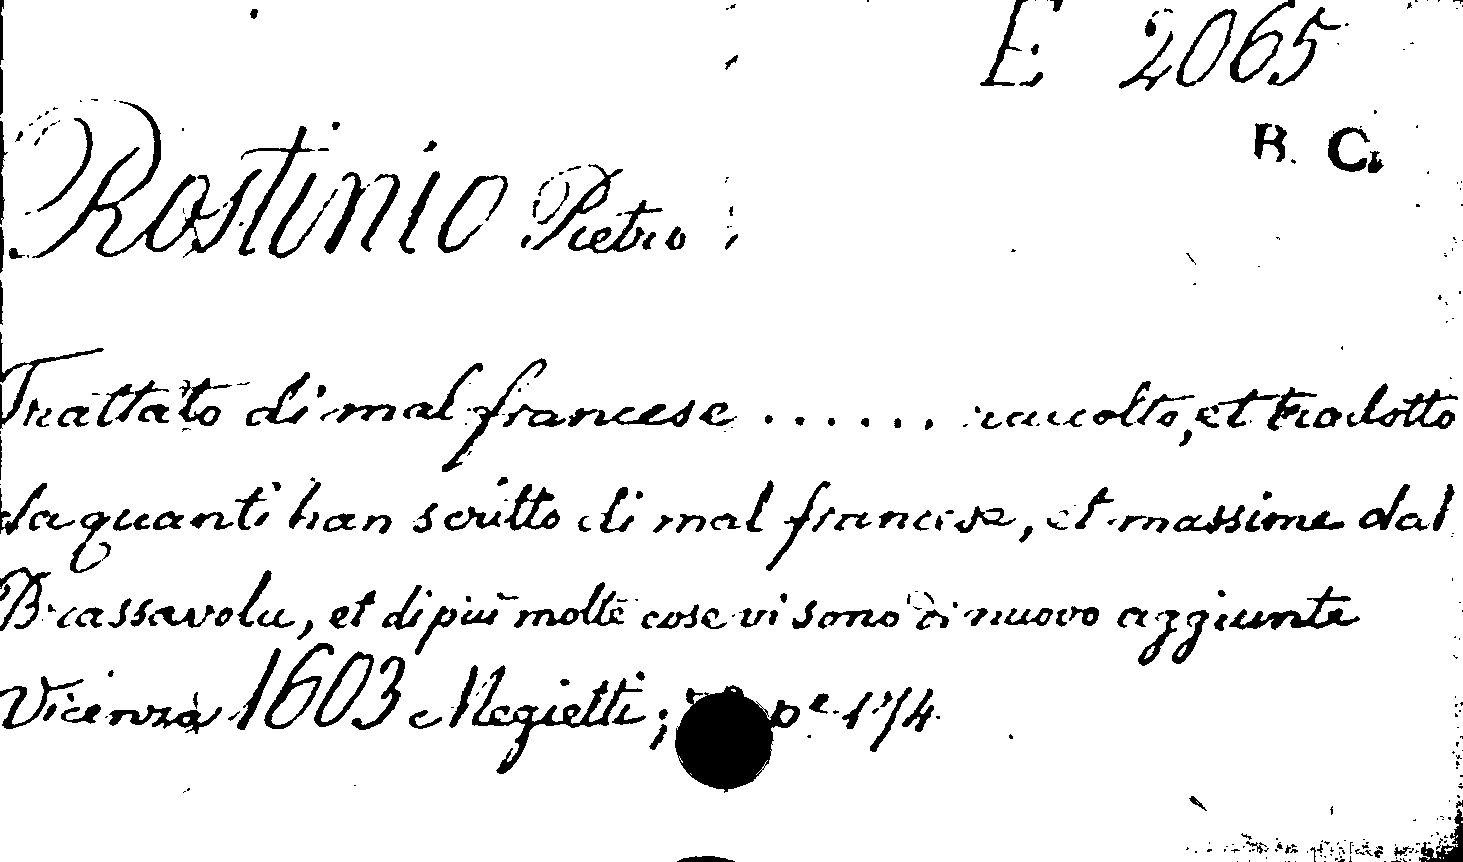 E 2065
R. C.
Rostinio Pietro
Trattato di mal francese ...... raccolto, et tradotto
da quanti han scritto di mal francese, et massime dal
Brassavolu, et di più molte cose vi sono di nuovo aggiunte
Vicenza 1603 Megietti; pe 174